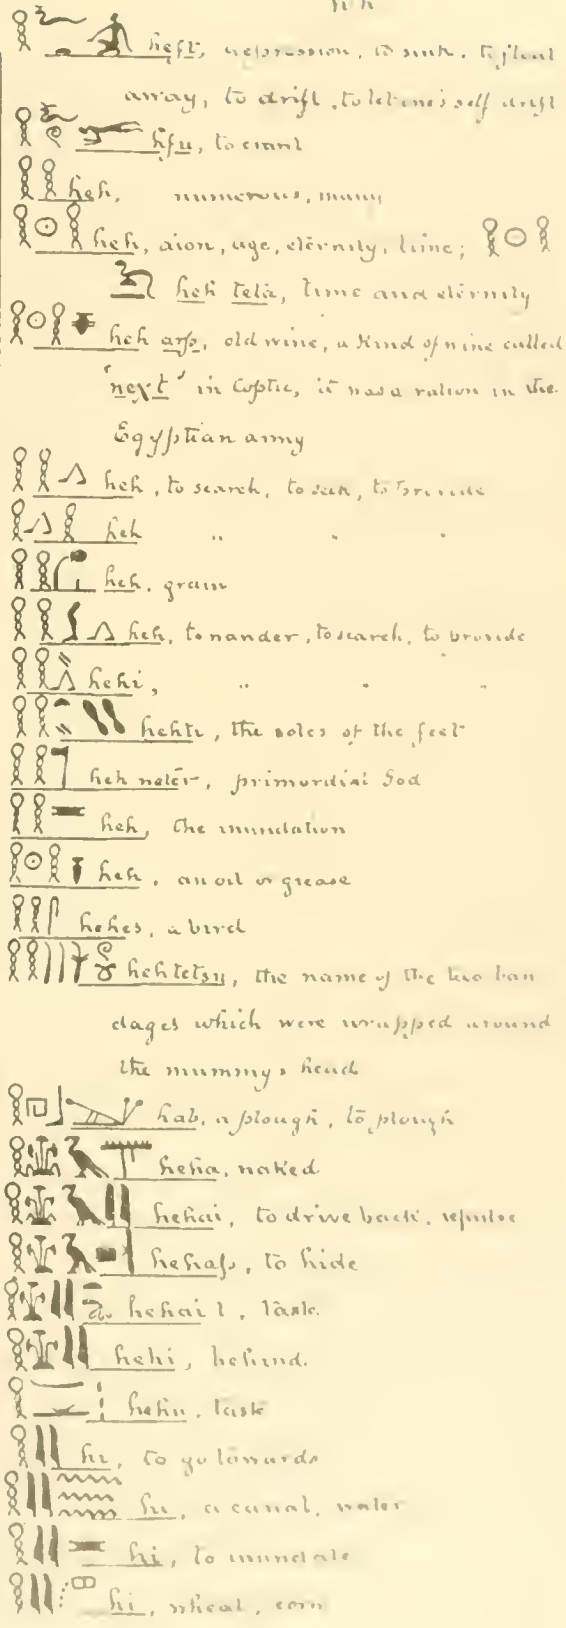 heft, depression, to sink, to float
away, to drift, to let one's self drift
hfu, to crawl
heh, numerous, many
heh, aion, age, eternity, time;
heh teta, time and eternity
heh arp, old wine, a kind of wine called
"next" in Coptic, it was a ration in the
Egyptian army
heh, to search, to seek, to provide
heh " " "
heh, grain
heh, to wander, to search, to provide
hehi, " " "
hehti, the soles of the feet
heh neter, primordial God
heh, the inundation
heh, an oil or grease
hehes, a bird
hehtetsu, the name of the two ban
dages which were wrapped around
the mummy's head
hab, a plough, to plough
heha, naked
hehai, to drive back, repulse
hehap, to hide
hehait, task
hehi, behind.
hehu, task
hi, to go towards
hi, a canal, water
hi, to inundate
hi, wheat, corn